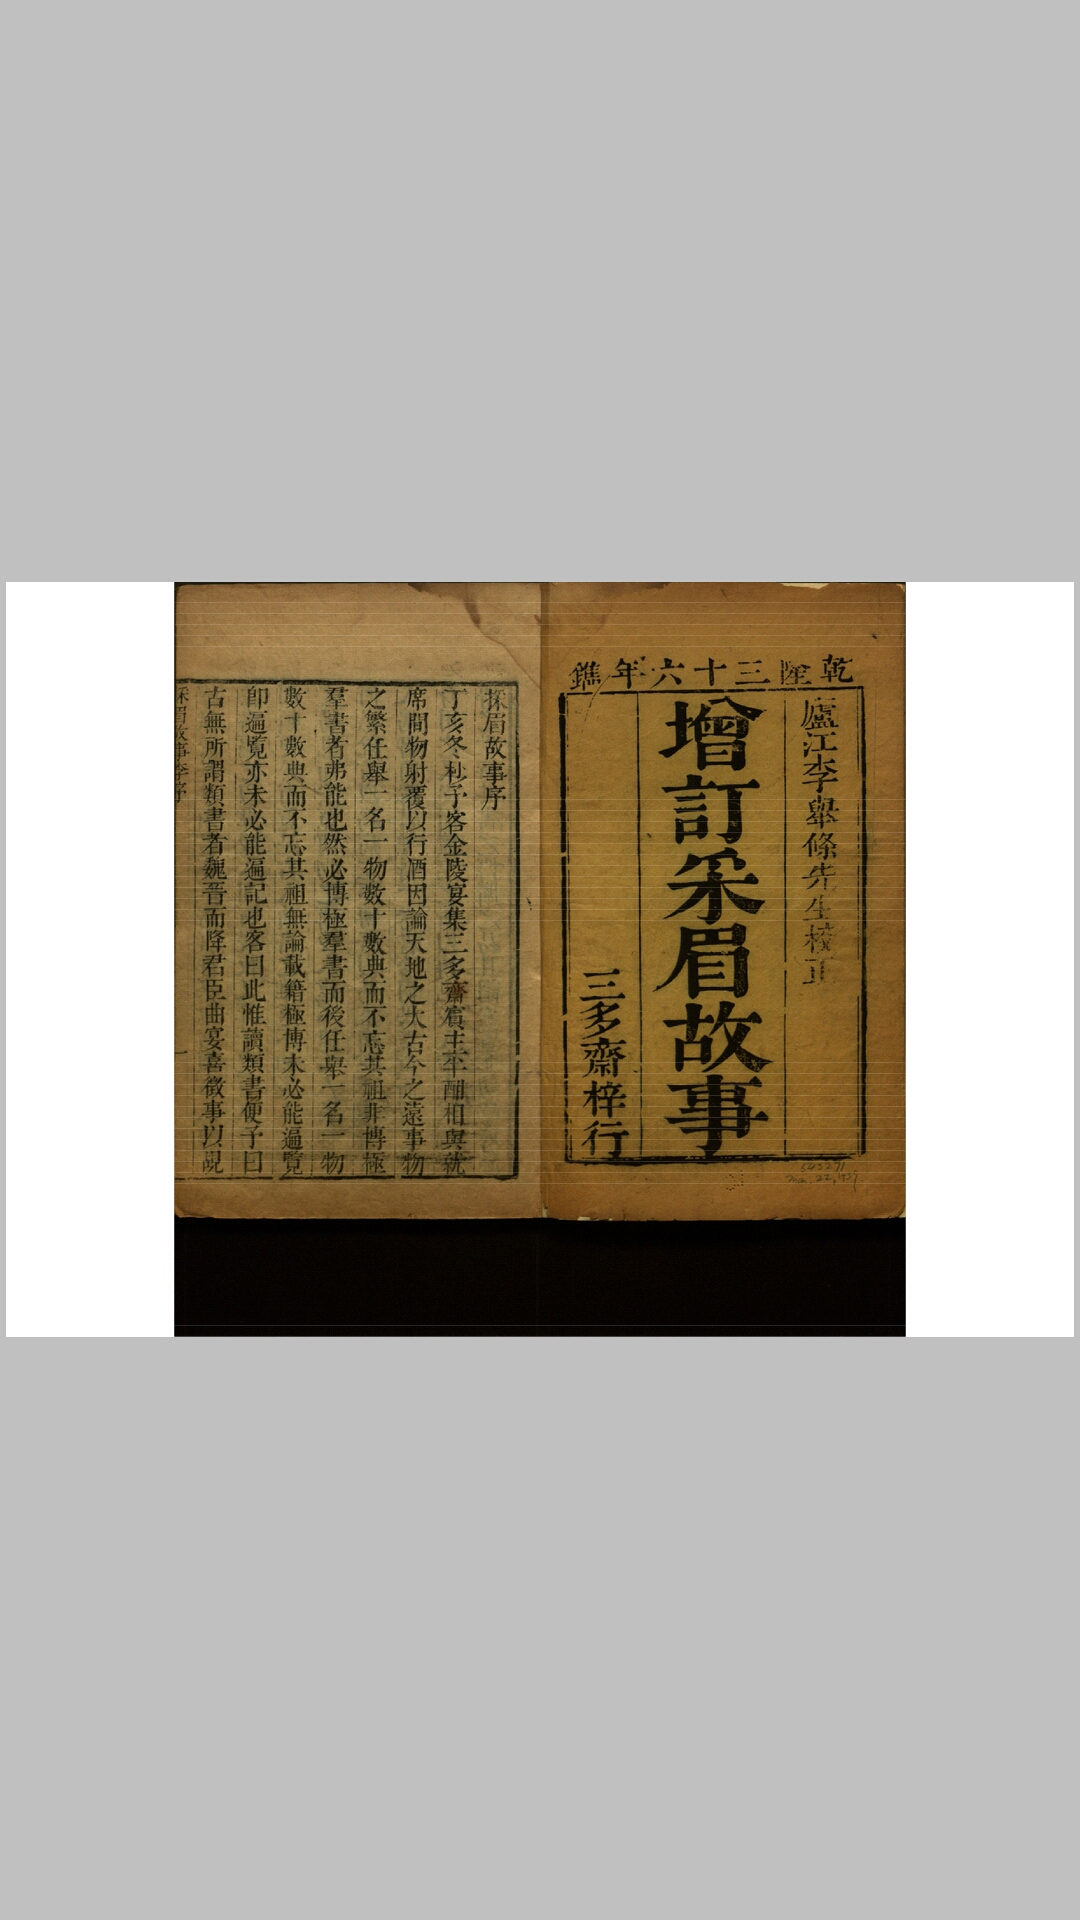 乾隆三十六年鐫
廬江李舉條先生校正
增訂采眉故事
三多齋梓行
採眉故事序
丁亥冬杪予客金陵宴集三多齋賓主半酣相與就
席間物射覆以行酒因論天地之大古今之遠事物
之繁任舉一名一物數十數典而不忘其祖非博極
羣書者弗能也然必博極羣書而後任舉一名一物
數十數典而不忘其祖無論載籍極博未必能遍覽
卽遍覽亦未必能遍記也客曰此惟讀類書便予曰
古無所謂類書者魏晉而降君臣曲宴喜徵事以覘
採眉故事李序
一